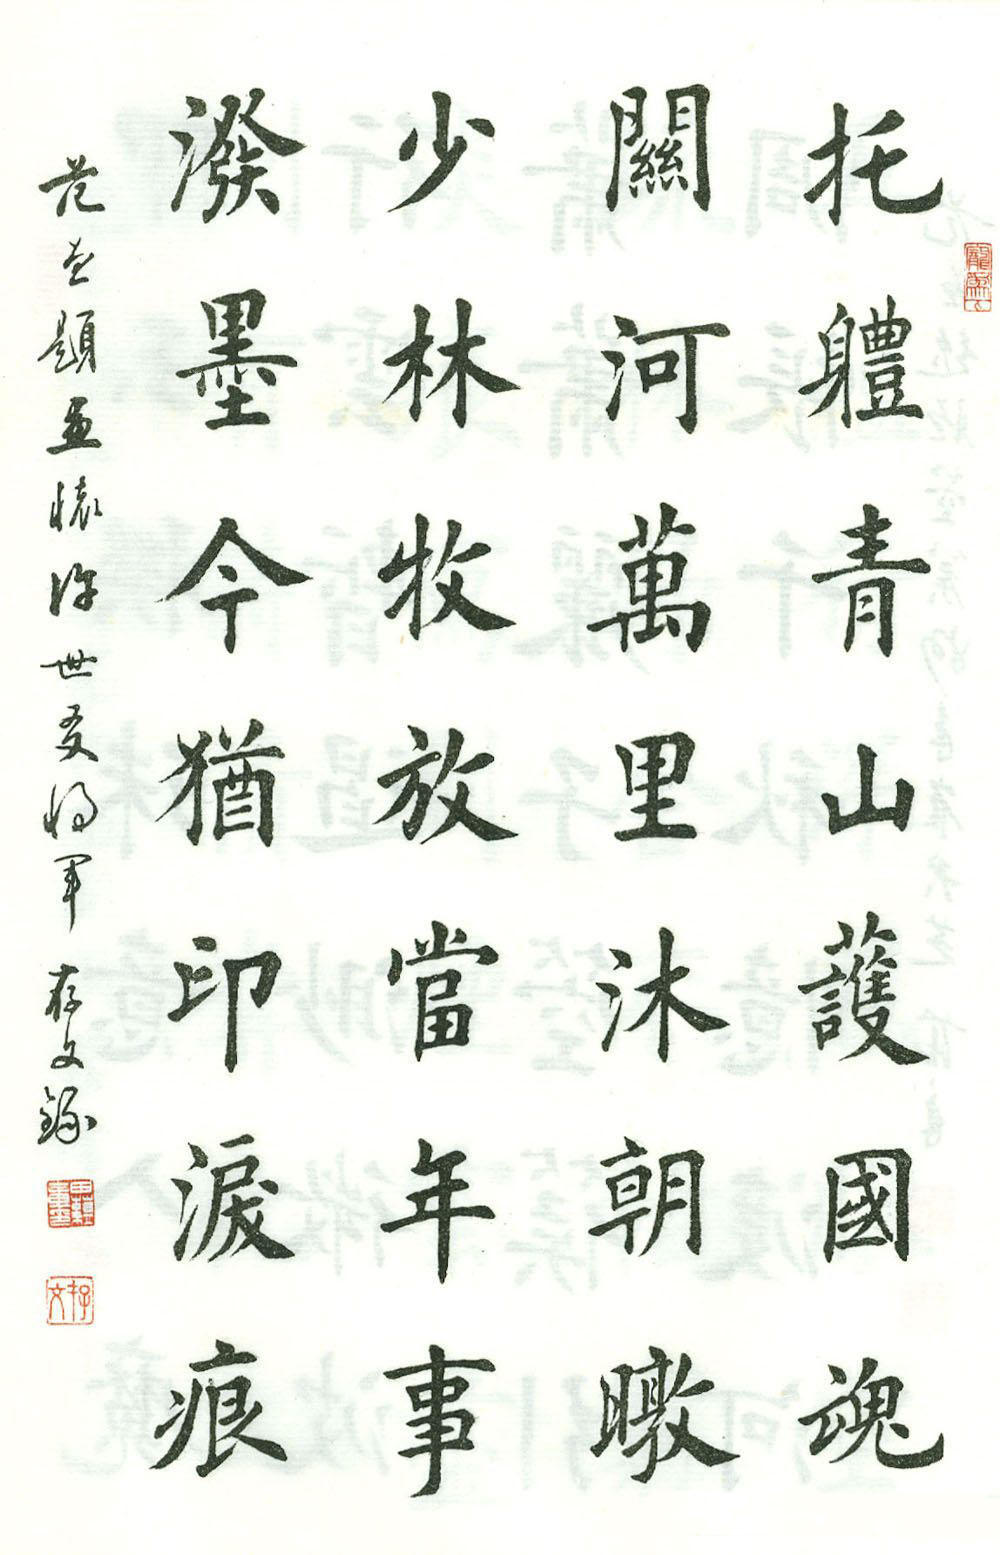 托軆青山護國魂
關河萬里沐朝暾
少林牧放當年事
潑墨今猶印淚痕
范老題畫懷許世友將軍 存文錄
存文